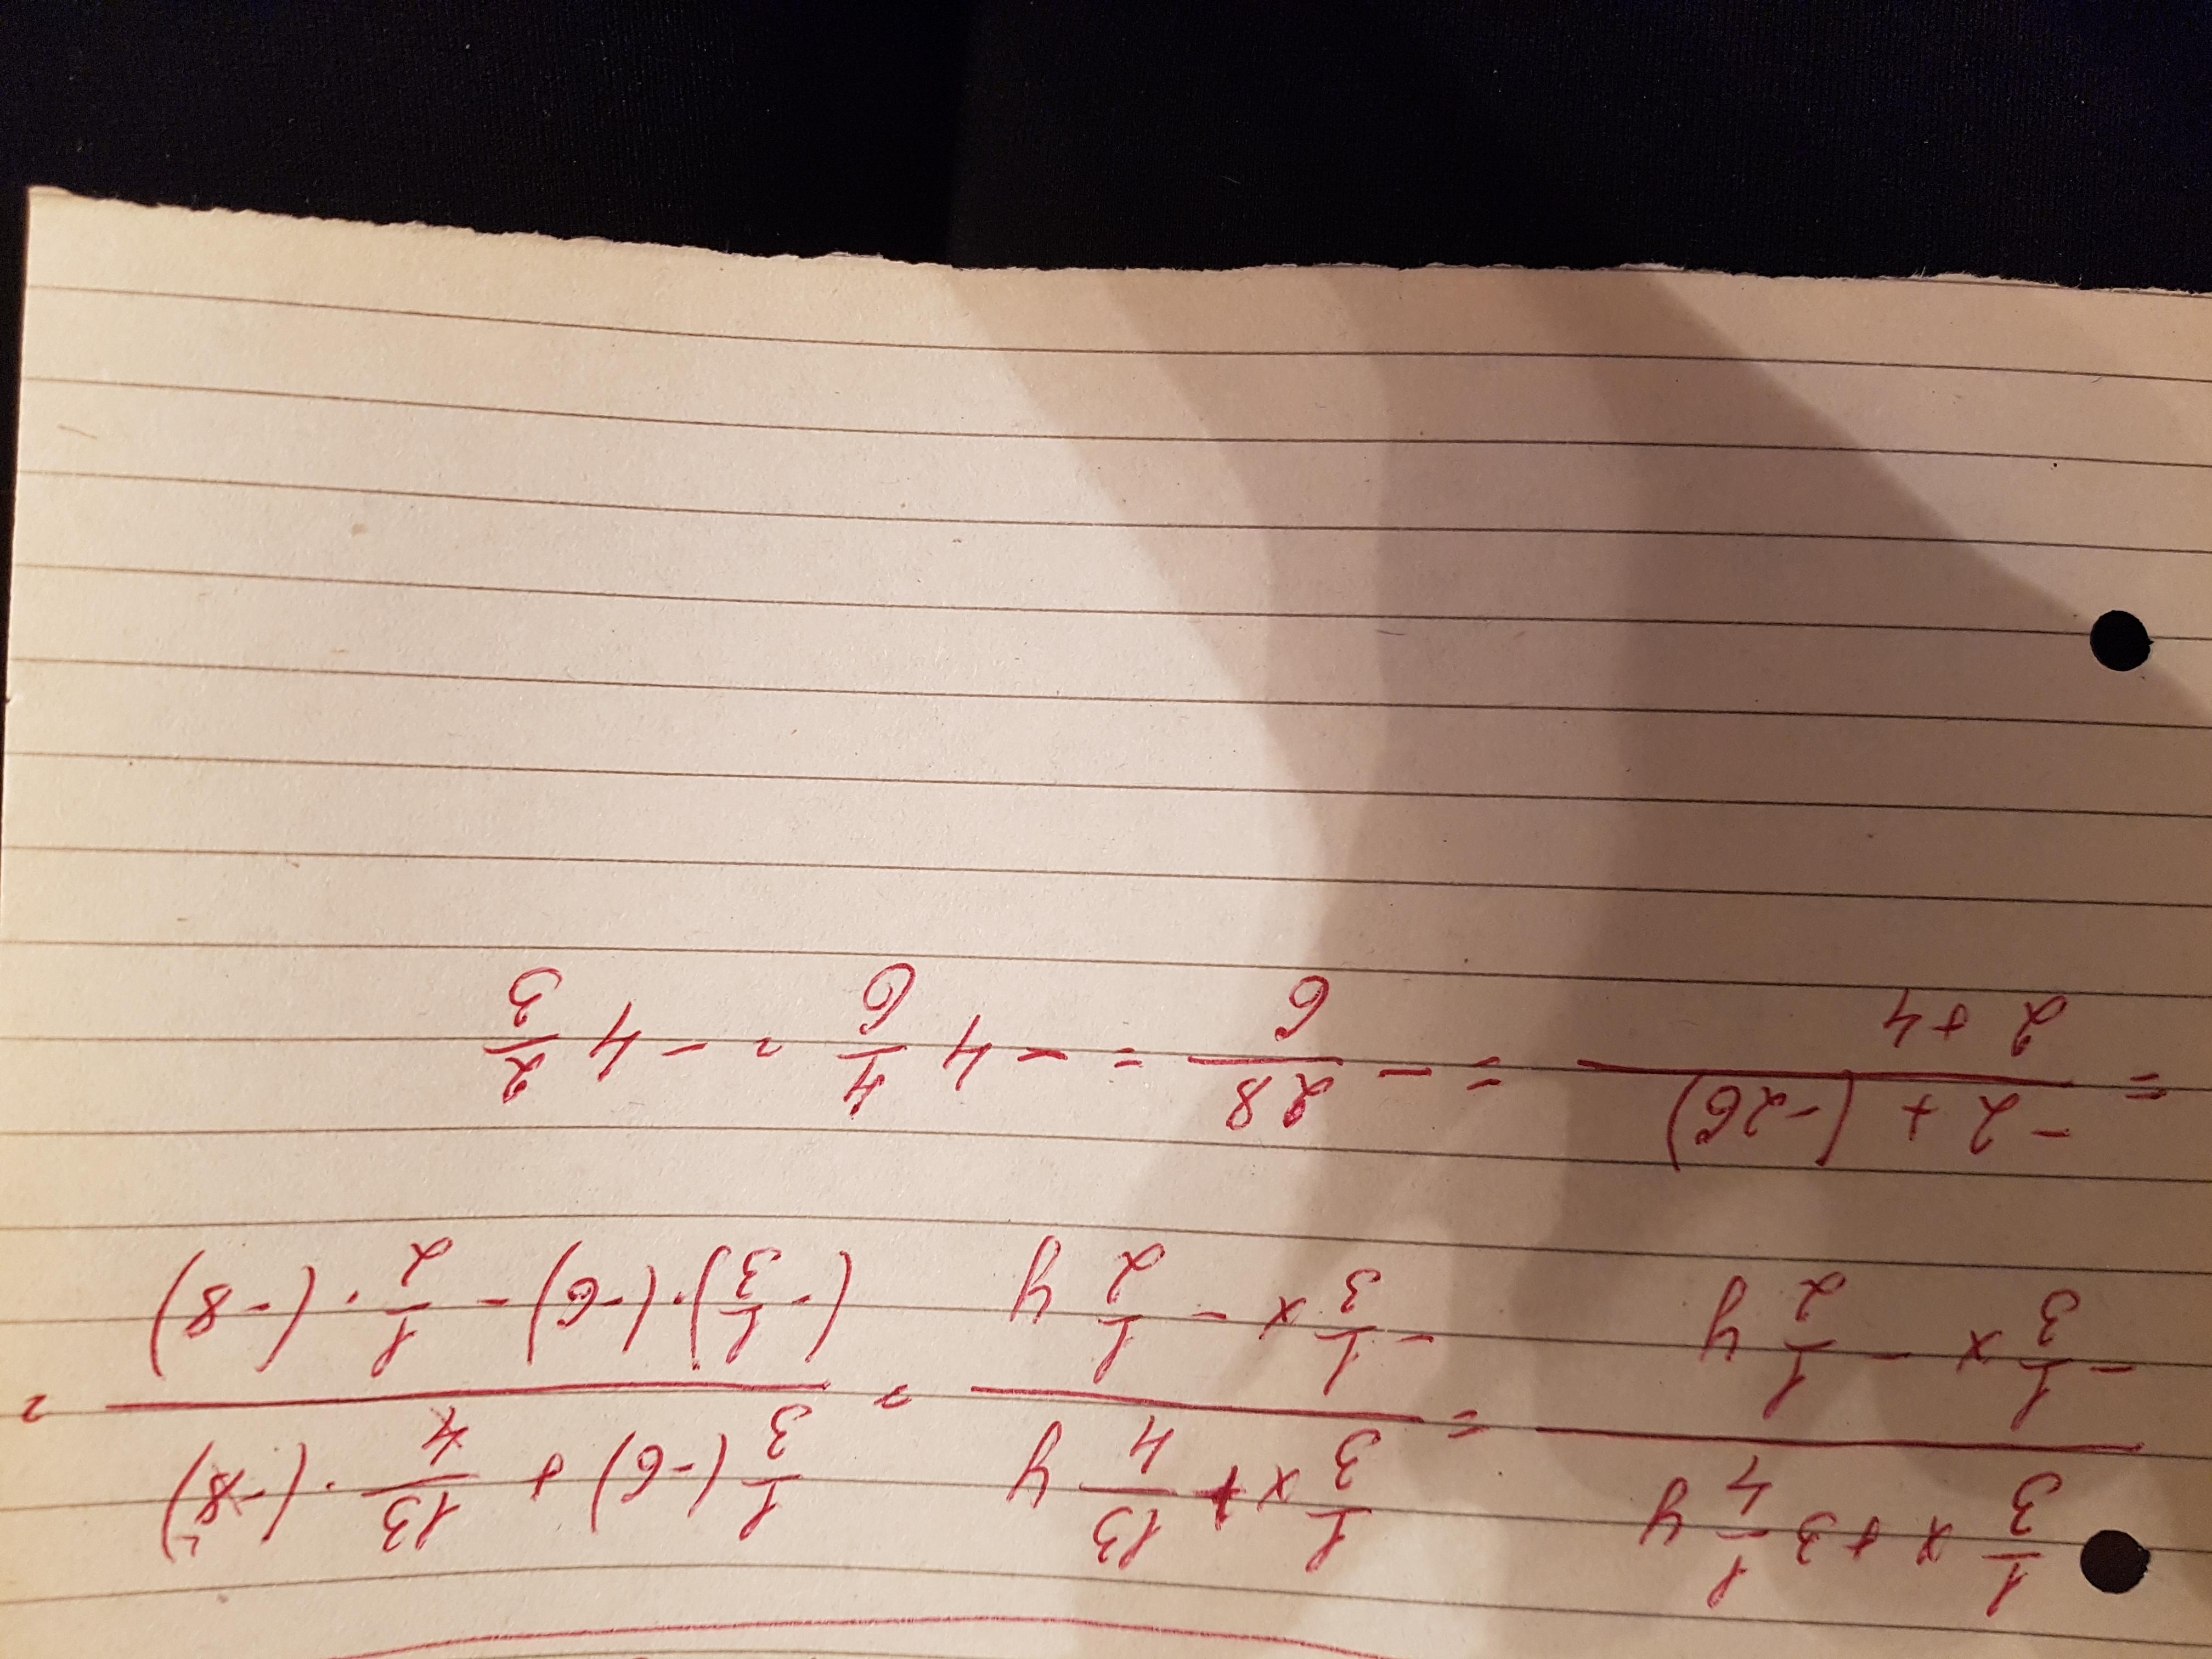 (1/3 x + 3 1/4 y)/(-1/3 x - 1/2 y) = (1/3 x + 13/4 y)/(-1/3 x - 1/2 y) = (1/3 (-6) + 13/4 · (-8))/((-1/3) · (-6) - 1/2 · (-8)) =
= (-2 + (-26))/(2 + 4) = - 28/6 = - 4 4/6 = - 4 2/3